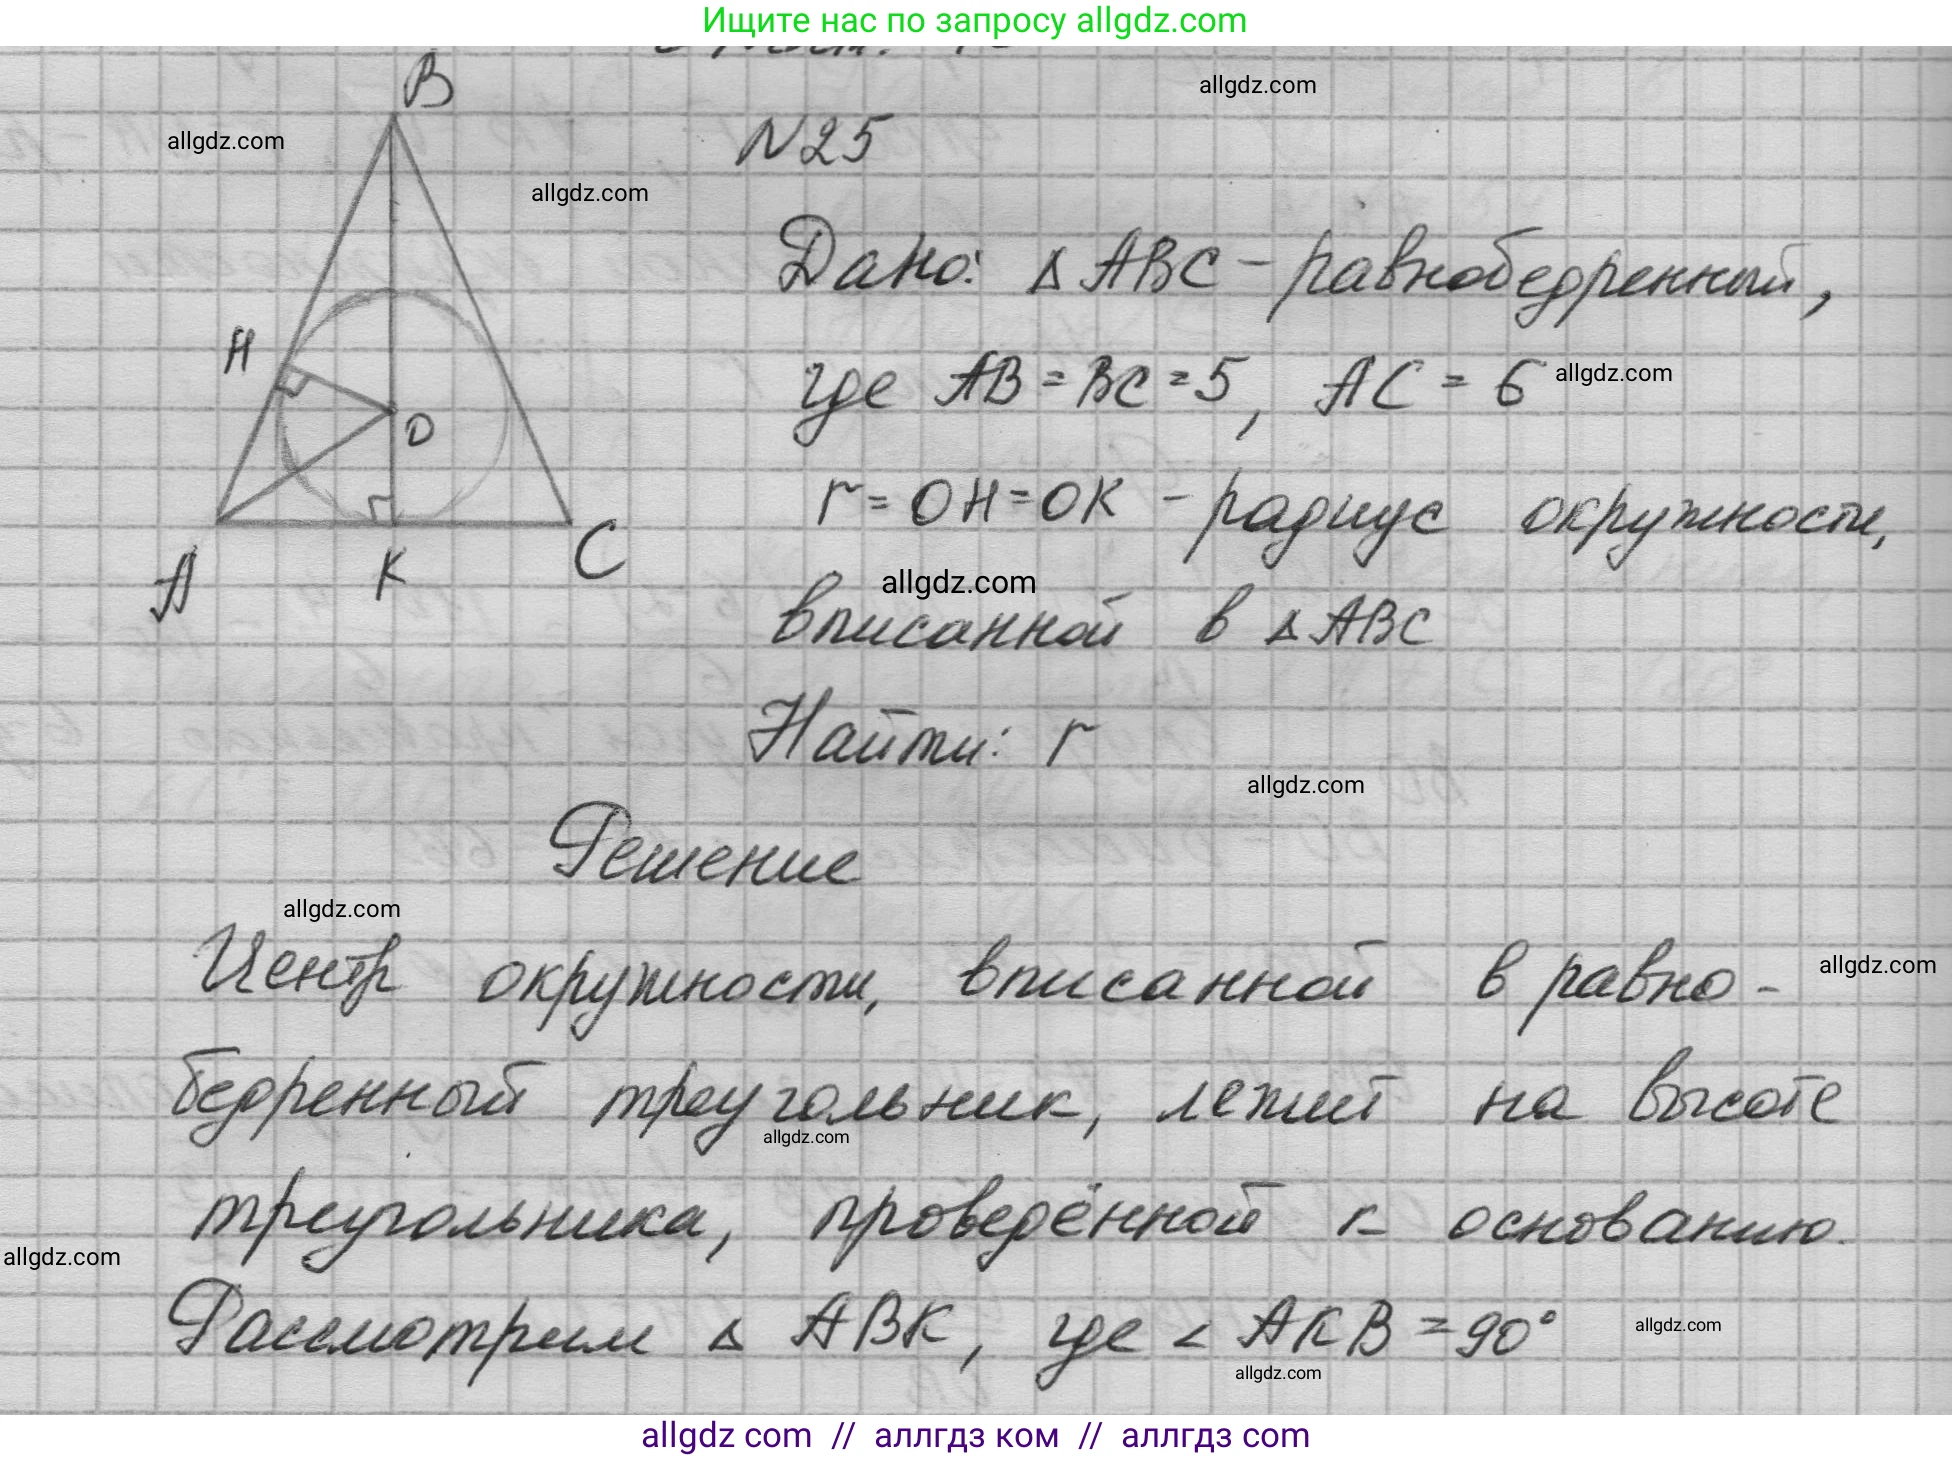 Ищите нас по запросу allgdz.com
B
allgdz.com
allgdz.com
N25
allgdz.com
Дано: Δ ABC - равнобедренный,
H
где AB = BC = 5, AC = 6
allgdz.com
O
r = OH = OK - радиус окружности,
A
K
C
allgdz.com
вписанной в Δ ABC
Найти: r
allgdz.com
Решение
allgdz.com
Центр окружности, вписанной в равно-
allgdz.com
бедренный треугольник, лежит на высоте
allgdz.com
треугольника, проведённой к основанию.
allgdz.com
Рассмотрим Δ ABK, где < AKB = 90°
allgdz.com
allgdz.com
allgdz com // аллгдз ком // аллгдз com